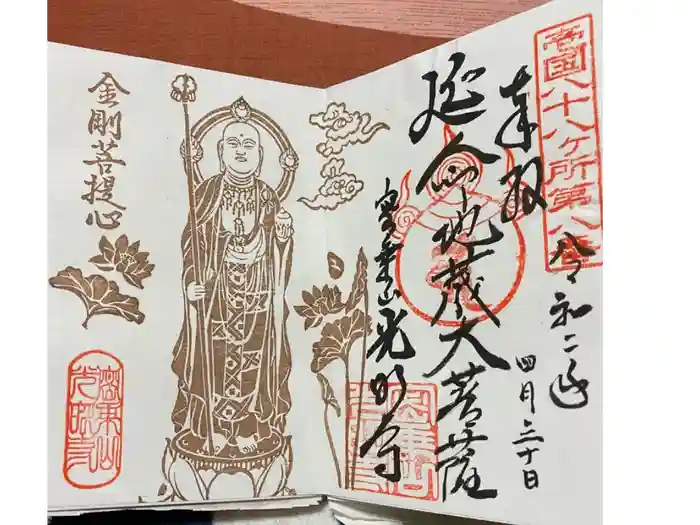 壱国八十八ヶ所第八番
奉拝
令和二年
四月三十日
延命地蔵大菩薩
密乗山
光明寺
金剛菩提心
密乗山
光明寺